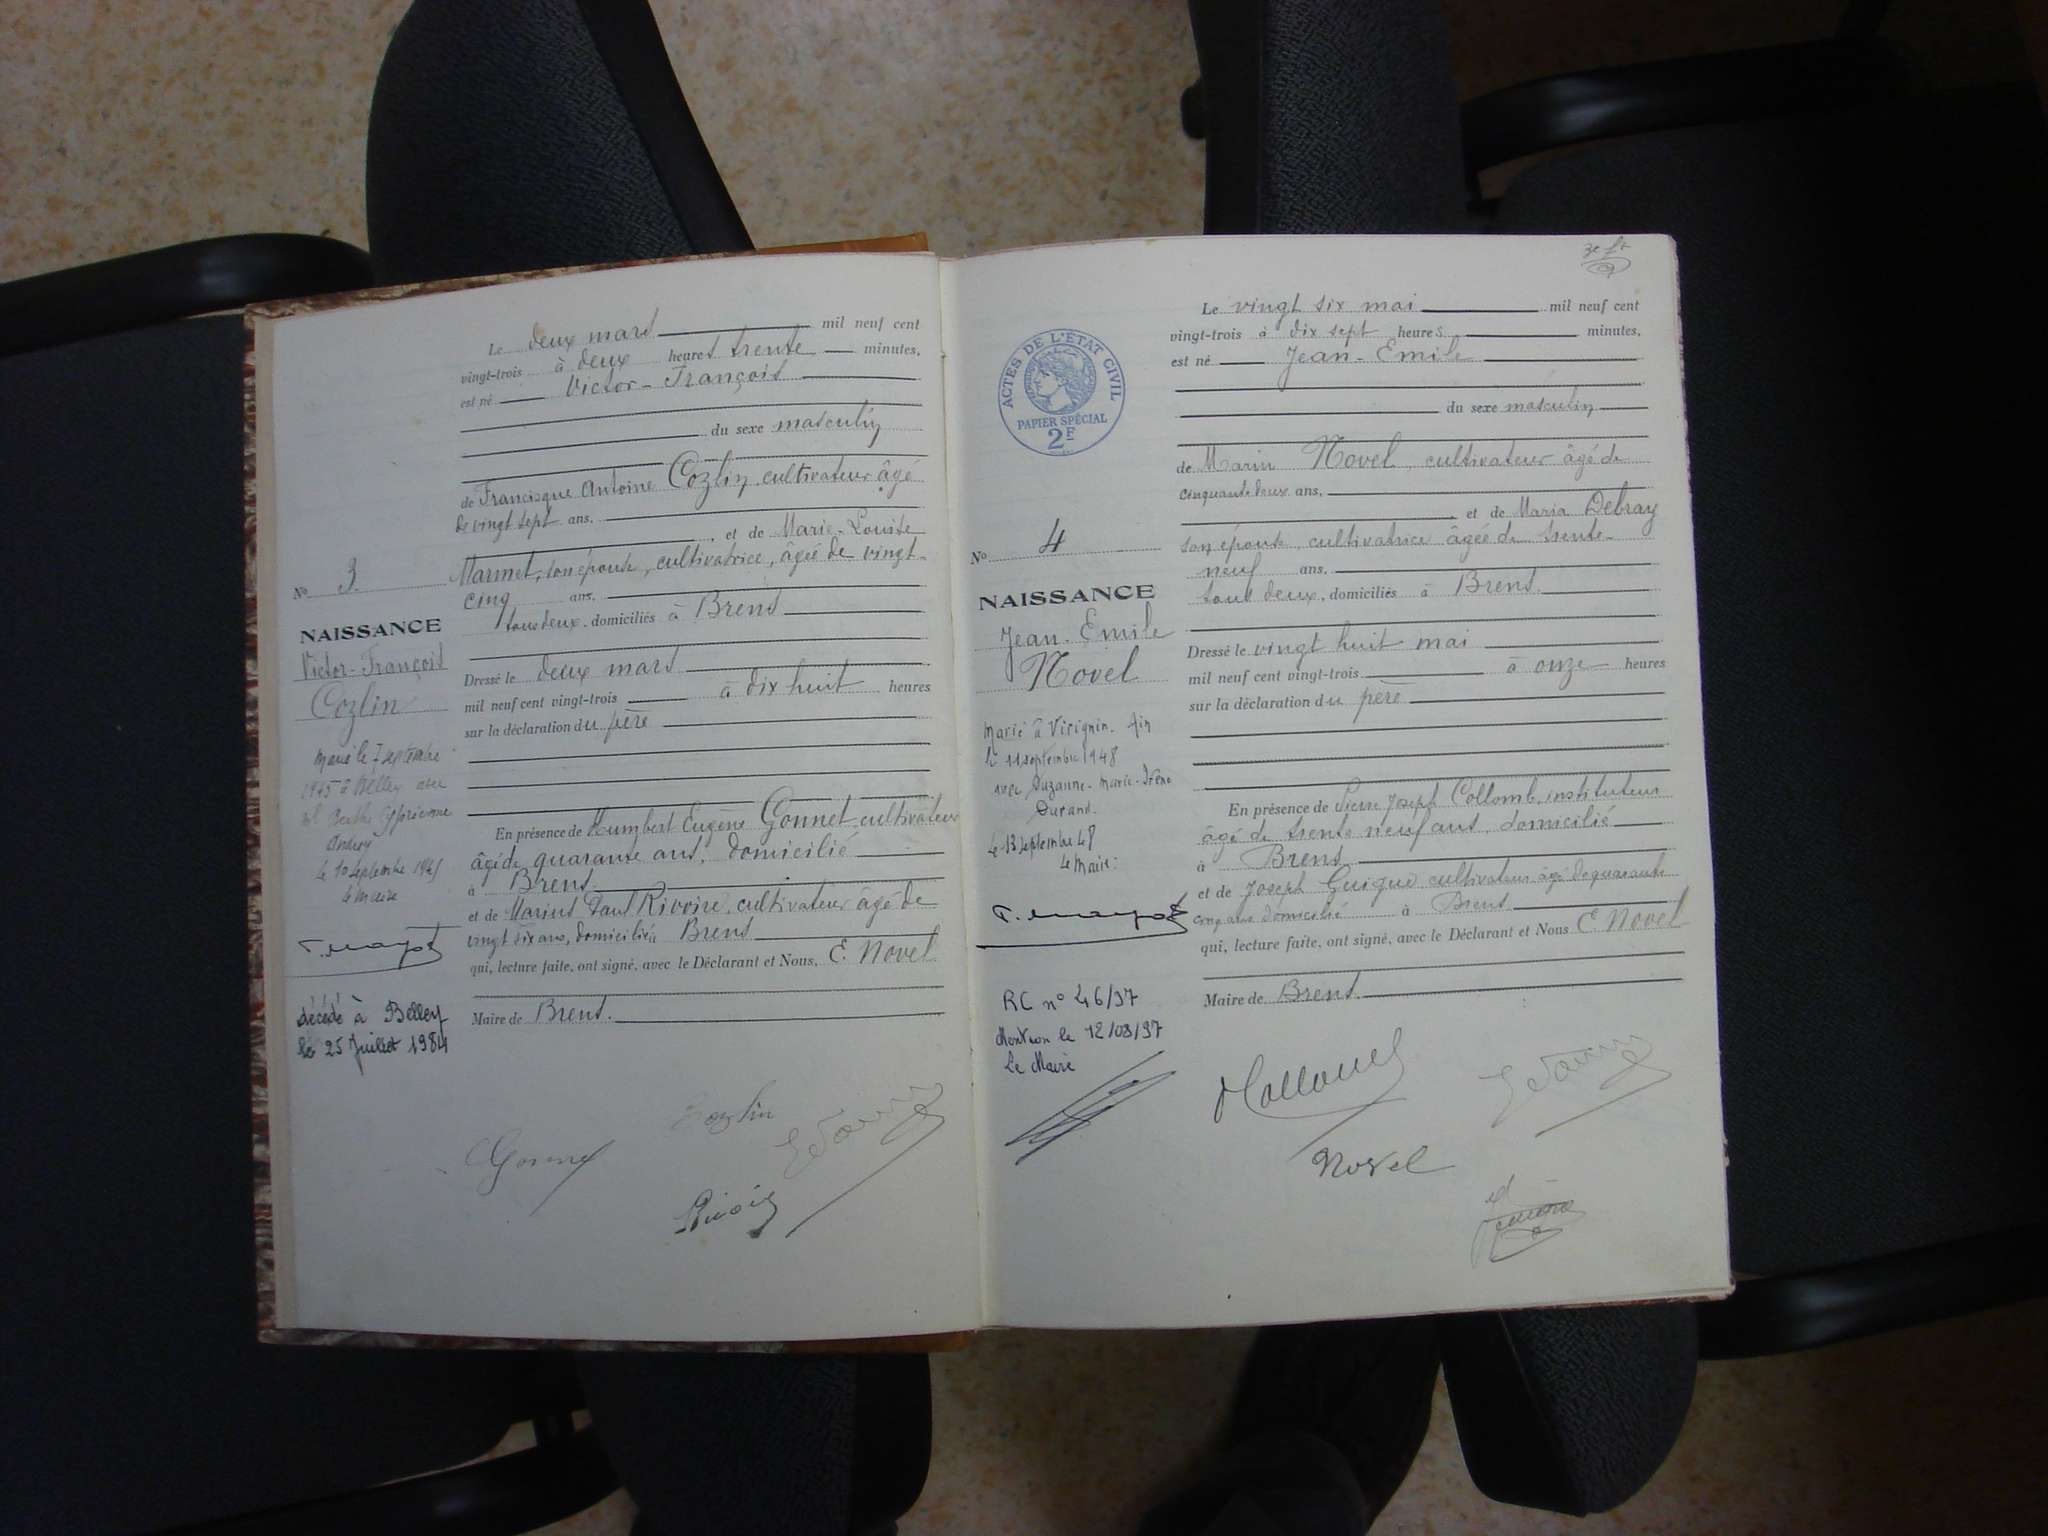 Le deux mars mil neuf cent
vingt-trois à deux heures trente minutes,
est né Victor-François
du sexe masculin
de Francisque Antoine Cozlin, cultivateur âgé
de vingt sept ans.
, et de Marie-Louise
Marmet, son épouse, cultivatrice, âgée de vingt-
cinq ans.
tous deux domiciliés à Brens
Dressé le deux mars
mil neuf cent vingt-trois à dix huit heures
sur la déclaration du père
En présence de Humbert Eugène Gonnet, cultivateur
âgé de quarante ans, domicilié
à Brens
et de Marius Paul Rivoire, cultivateur âgé de
vingt six ans, domicilié à Brens
qui, lecture faite, ont signé, avec le Déclarant et Nous, E. Novel
Maire de Brens.
No 3
NAISSANCE
Victor-François
Cozlin
Marié le 7 septembre
1945 à Belley avec
Berthe Cyprienne
le 10 septembre 1945
le maire
décédé à Belley
le 25 Juillet 1984
Gonnet
Cozlin
Rivoire
Le vingt six mai mil neuf cent
vingt-trois à dix sept heures minutes,
est né Jean-Emile
du sexe masculin
de Marin Novel, cultivateur âgé de
cinquante deux ans,
, et de Maria Debray
son épouse, cultivatrice âgée de trente-
neuf ans.
tous deux, domiciliés à Brens
Dressé le vingt huit mai
mil neuf cent vingt-trois à onze heures
sur la déclaration du père
En présence de Pierre Joseph Collomb, instituteur
âgé de trente neuf ans, domicilié
à Brens
et de Joseph Guigue cultivateur âgé de quarante
cinq ans domicilié à Brens
qui, lecture faite, ont signé, avec le Déclarant et Nous E. Novel
Maire de Brens.
ACTES DE L'ÉTAT CIVIL
PAPIER SPÉCIAL
2F
No 4
NAISSANCE
Jean-Emile
Novel
Marié à Virignin. Ain
le 11 septembre 1948
avec Suzanne-Marie-Irène
Durand.
le 13 septembre 48
Le Maire:
RC n° 46/97
Mention le 12/08/97
Le Maire
Novel